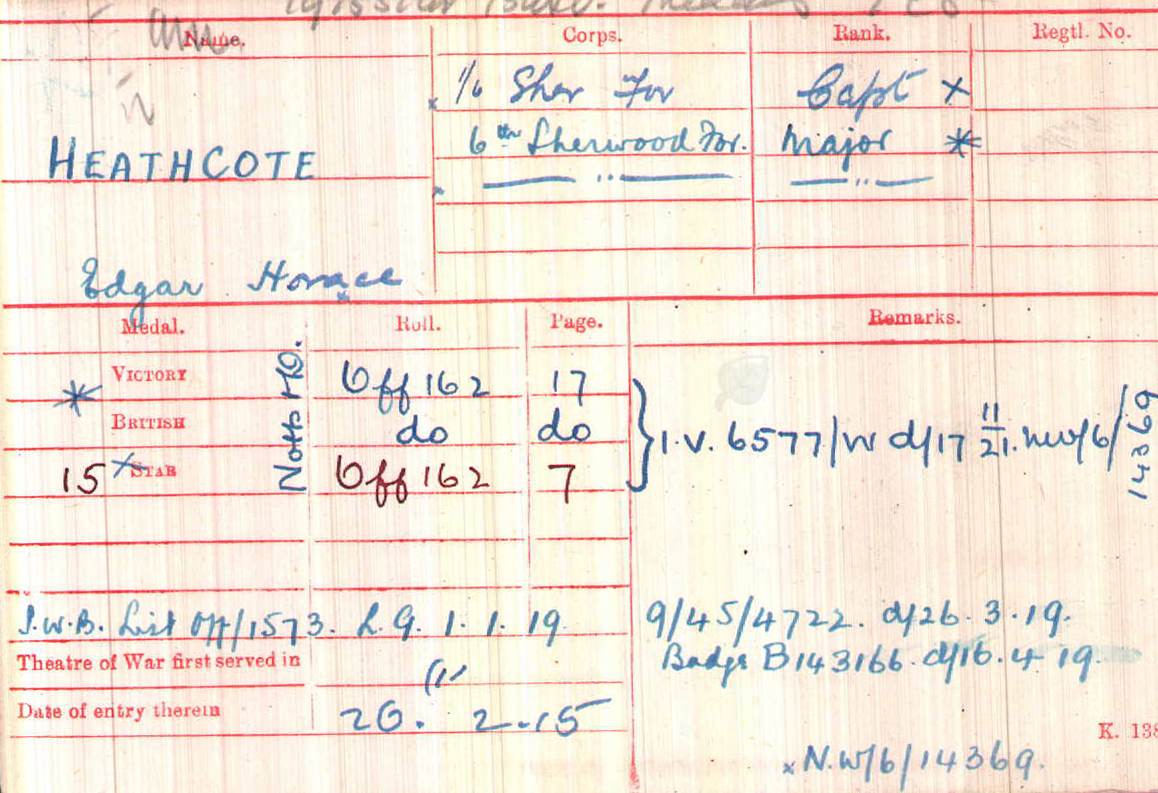 Name. Corps. Rank. Regtl. No.
x 1/6 Sher For Capt X
HEATHCOTE 6th Sherwood For. Major *
x — " — — " —
Edgar Horace
x
Medal. Roll. Page. Remarks.
* VICTORY Notts HQ. Off 162 17
BRITISH do do } I.V. 6577/W d/17 11/21. nw/6/14369
15 x STAR Off 162 7
S.W.B. List Off/1573. L.G. 1. 1. 19. 9/45/4722. d/26.3.19.
Theatre of War first served in Badge B143166. d/16.4 19.
Date of entry therein 26. 2-15
K. 138
x N.W/6/14369.